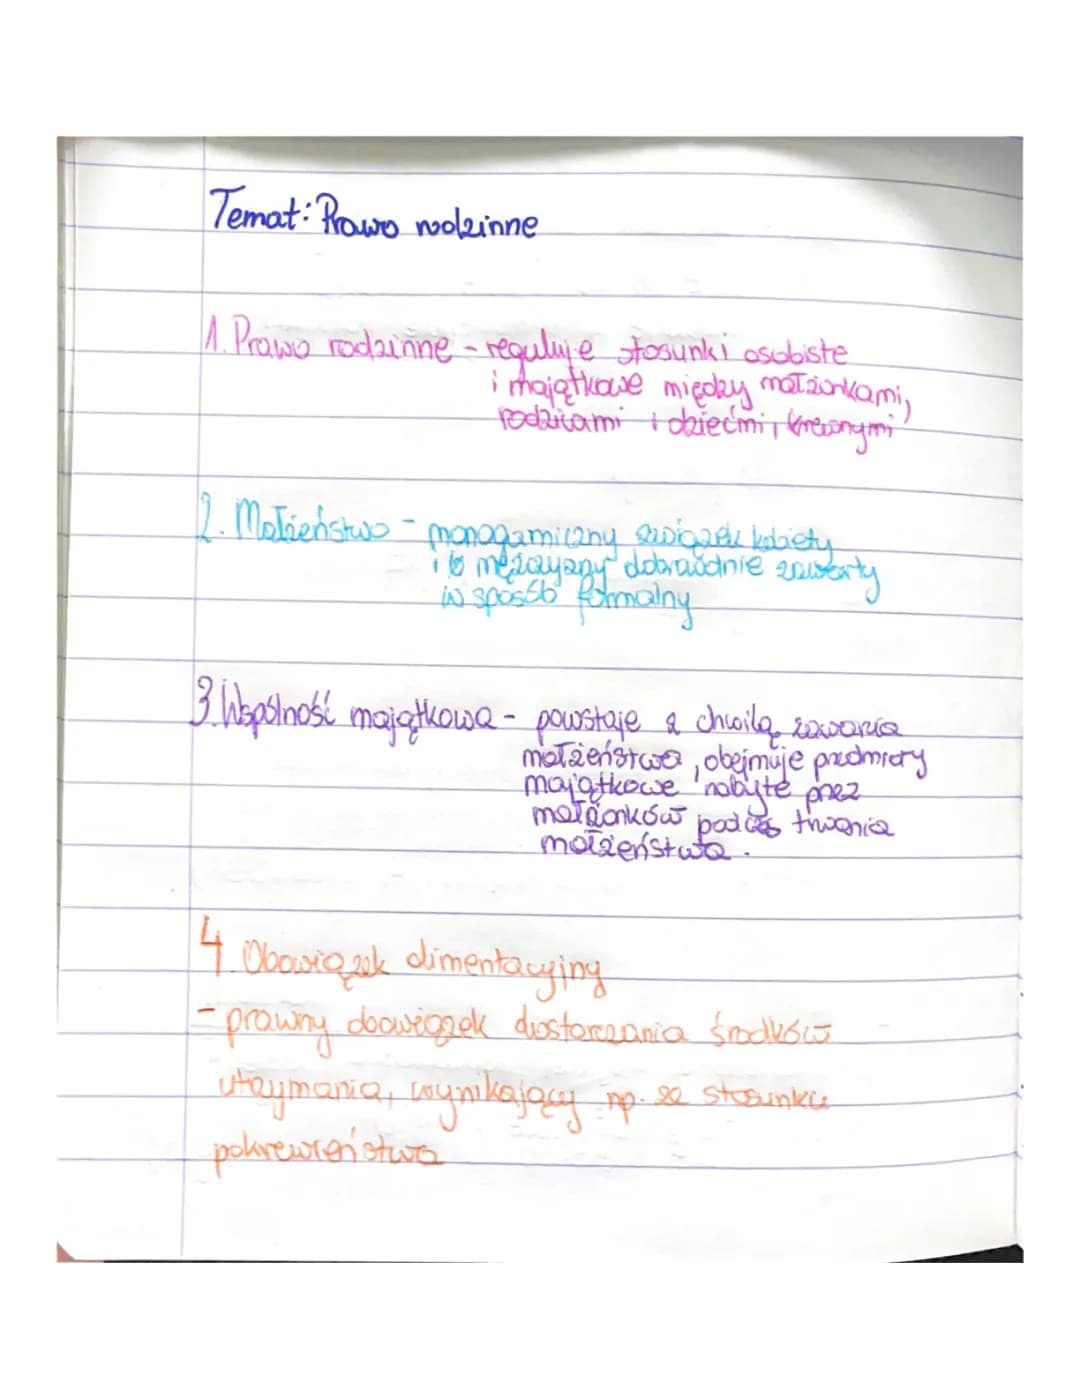 Temat: Prawo rodzinne
1. Prawo rodzinne - reguluje stosunki osobiste
i majątkowe między małżonkami,
rodzicami i dziećmi, krewnymi
2. Małżeństwo - monogamiczny związek kobiety
i mężczyzny dobrowolnie zawarty
w sposób formalny
3. Wspólność majątkowa - powstaje z chwilą zawarcia
małżeństwa, obejmuje przedmioty
majątkowe nabyte przez
małżonków podczas trwania
małżeństwa.
4. Obowiązek alimentacyjny
- prawny obowiązek dostarczania środków
utrzymania, wynikający np. ze stosunku
pokrewieństwa